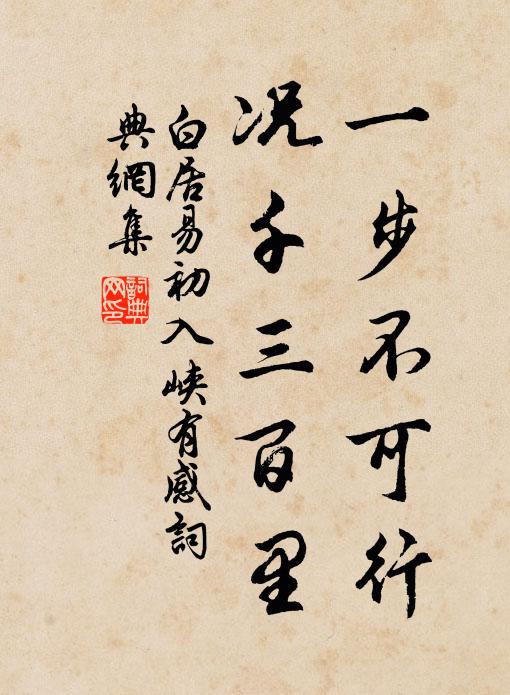 一步不可行
况千三百里
白居易初入峡有感詞
典網集
詞典网印